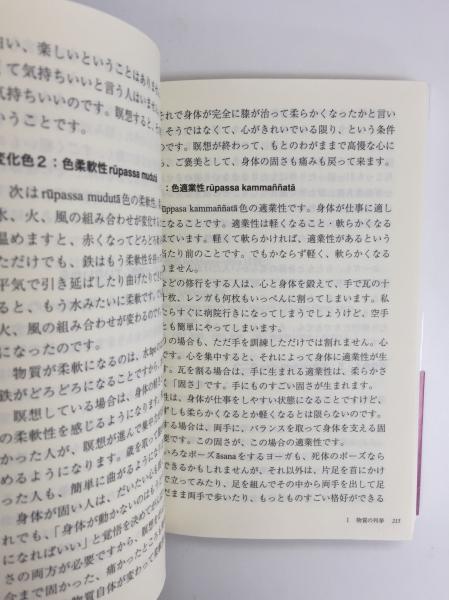 白い、楽しいということはありませ
て気持ちいいと言う人はいません
気持ちいいのです。瞑想すると、
いうことです。
変化色２：色柔軟性rūpassa mudutā
次はrūpassa mudutā色の柔軟性
水、火、風の組み合わせが変化す
温めますと、赤くなってどろどろ
ただけでも、鉄はもう柔軟性を持
平気で引き延ばしたり曲げたりでき
ると、もう水みたいに柔軟です。
火、風の組み合わせが変わるので
になったのです。
物質が柔軟になるのは、水
鉄がどろどろになることですから
瞑想している場合は、身体の軽
の柔軟性を感じるようになります
かった人が、瞑想が進んで集中が
めるようになります。歳を取って
った人も、簡単に曲がるようになる
身体が固い人は、だいたい心も
れでも、「身体が動かないのはもっ
になればいい」と覚悟を決めて
さの両方が必要ですから、瞑想を
今まで固かった、痛かったところ
物質自体が変わって
それで身体が完全に膝が治って柔らかくなったかと言い
そうではなくて、心がきれいでいる限り、という条件
のです。瞑想が終わって、もとのわがままで高慢な心に
ら、ご褒美として、身体の固さも痛みも戻って来ます。
：色適業性rūpassa kammaññatā
rūpassa kammaññatā色の適業性です。身体が仕事に適し
になることです。適業性は軽くなること・軟らかくなる
ています。軽くて軟らかければ、適業性があるという
当たり前のことです。でもかならず軽く、軟らかくなる
りません。
などの修行をする人は、心と身体を鍛えて、手で瓦の十
十枚、レンガも何枚もいっぺんに割ってしまいます。私
たらすぐに病院行きになってしまうでしょうけど、空手
とも簡単にやってしまいます。
の場合も、ただ手を訓練しただけでは割れません。心
す。心を集中すると、それによって身体に適業性が生
す。瓦を割る場合は、手に生まれる適業性は、柔らかさ
く「固さ」です。手にものすごい固さが生まれます。
性は、身体が仕事をしやすい状態になることですけど、
ずしも柔らかくなるとか軽くなるとは限らないのです。
する場合は、両手に、バランスを取って身体を支える固
要です。この固さが、この場合の適業性です。
いろなポーズāsanaをするヨーガも、死体のポーズなら
できるかもしれませんが、それ以外は、片足を首にかけ
で立ってみたり、足を組んでその中から両手を出して足
だまま両手で歩いたり、もっともものすごい格好ができる
1　物質の列挙　215